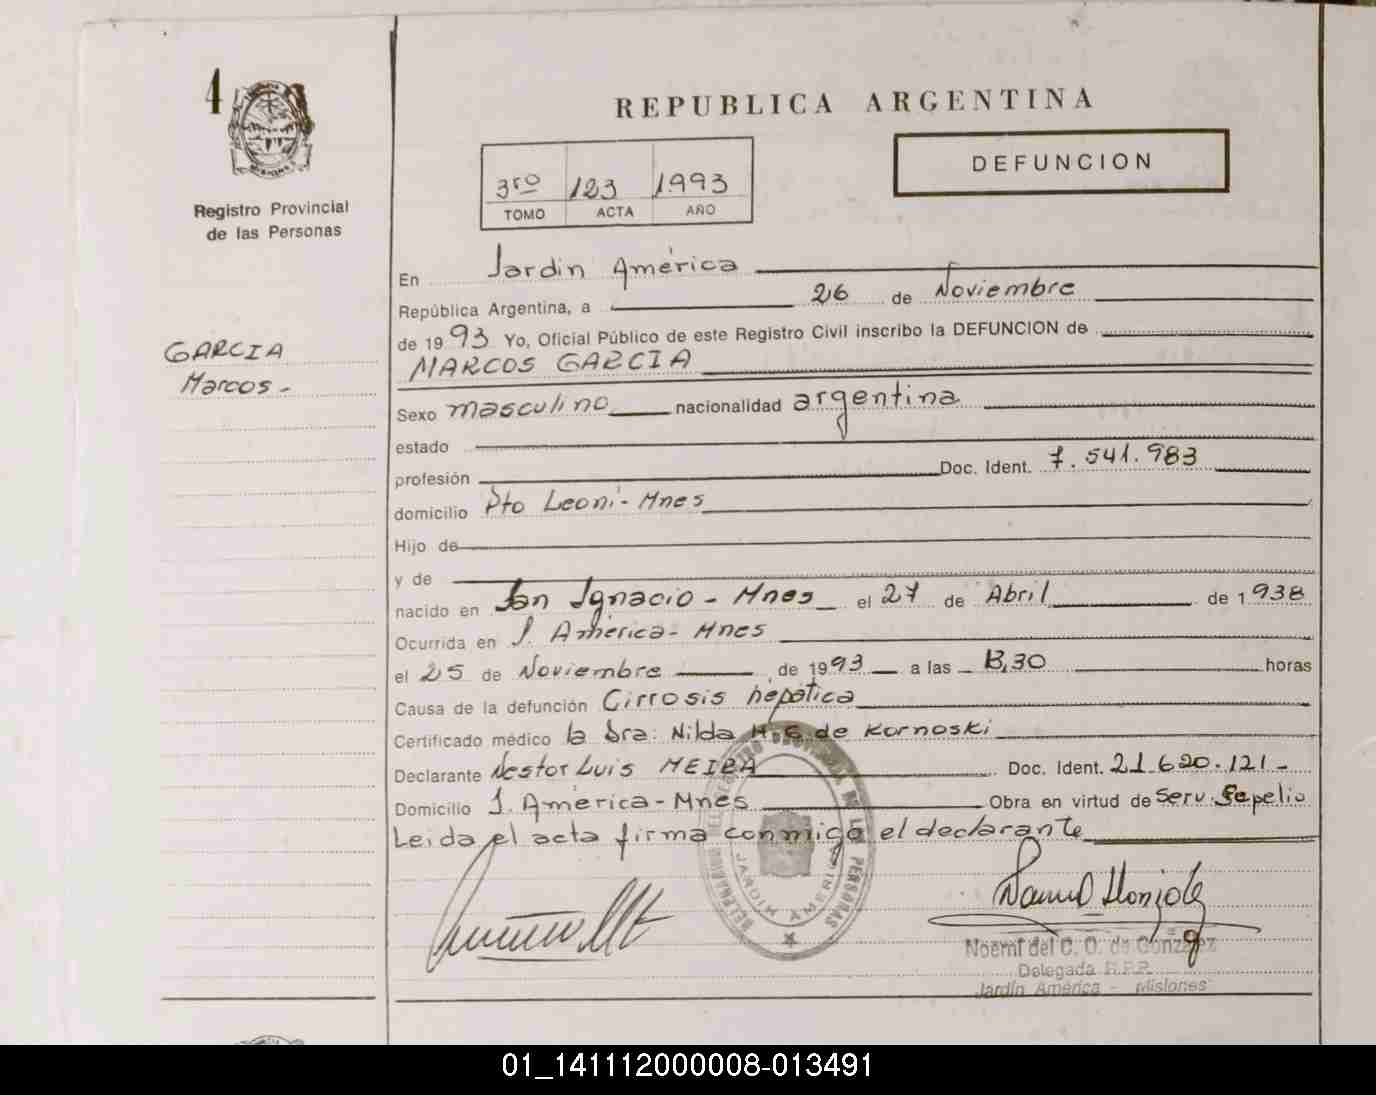 4
Registro Provincial
de las Personas
GARCIA
Marcos-
REPUBLICA ARGENTINA
DEFUNCION
3ro 123 1993
TOMO ACTA AÑO
En Jardin América
República Argentina, a 26 de Noviembre
de 1993 Yo, Oficial Público de este Registro Civil inscribo la DEFUNCION de
MARCOS GARCIA
Sexo masculino nacionalidad argentina
estado
profesión Doc. Ident. 7.541.983
domicilio Pto Leoni-Mnes
Hijo de
y de
nacido en San Ignacio-Mnes el 27 de Abril de 1938
Ocurrida en J. América-Mnes
el 25 de Noviembre de 1993 a las 13,30 horas
Causa de la defunción Cirrosis hepática
Certificado médico la Dra: Nilda de Kornoski
Declarante Nestor Luis MEIRA Doc. Ident. 21.620.121-
Domicilio J. América-Mnes Obra en virtud de Serv. Sepelio
Leida el acta firma conmigo el declarante
JARDIN AMERICA
DE LAS PERSONAS
Noemí del C. O. de González
Delegada R.P.P.
Jardín América - Misiones
01_141112000008-013491